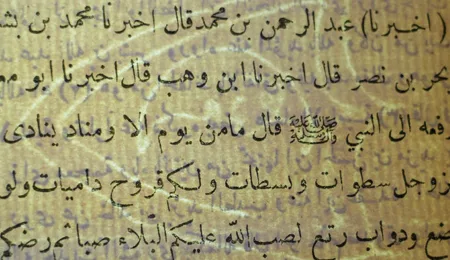 ( اخبرنا ) عبد الرحمن بن محمد قال اخبرنا محمد بن بشـ
بحر بن نصر قال اخبرنا ابن وهب قال اخبرنا ابو مع
رفعه الى النبي ﷺ قال مامن يوم الا ومناد ينادى
زوجل سطوات وبسطات ولكم قروح داميات ولو
ضع ودواب رتع لصب الله عليكم البلاء صبا ثم رضكم